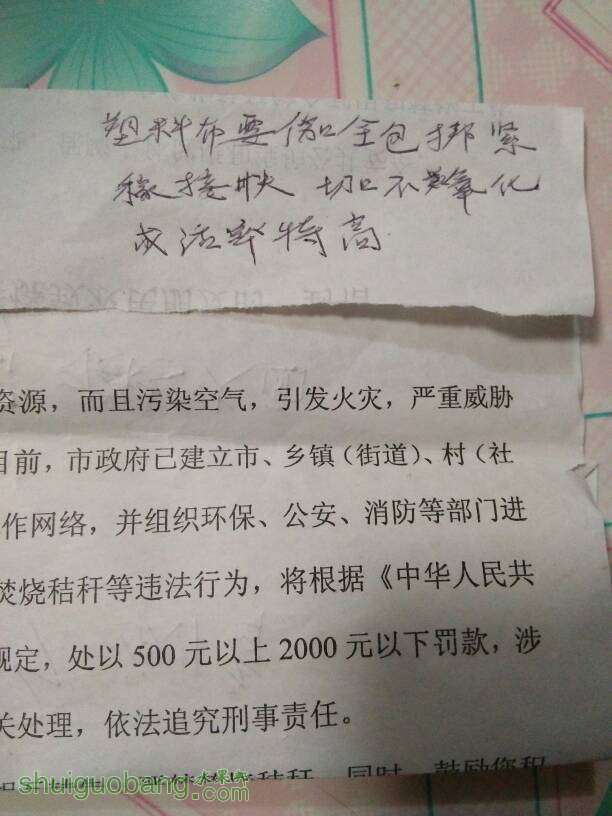 塑料布要伤口全包绑紧
嫁接快 切口不氧化
成活率特高
资源，而且污染空气，引发火灾，严重威胁
目前，市政府已建立市、乡镇（街道）、村（社
作网络，并组织环保、公安、消防等部门进
焚烧秸秆等违法行为，将根据《中华人民共
规定，处以500元以上2000元以下罚款，涉
关处理，依法追究刑事责任。
秸秆，同时，鼓励您积
水果邦
shuiguobang.com